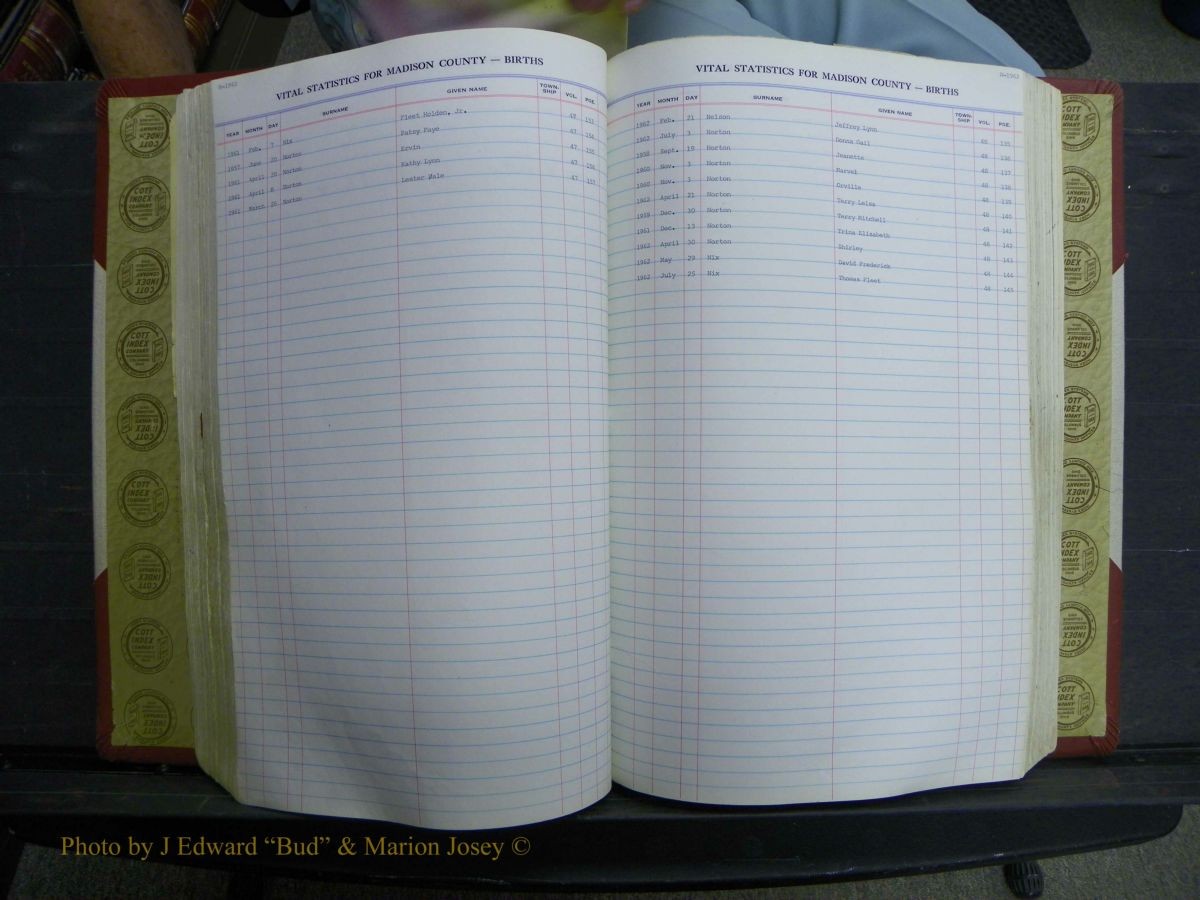 VITAL STATISTICS FOR MADISON COUNTY — BIRTHS
YEAR MONTH DAY SURNAME GIVEN NAME TOWN-SHIP VOL. PGE.
1961 Feb. 7 Nix Fleet Holden, Jr. 47 153
1957 June 20 Norton Patsy Faye 47 154
1961 April 20 Norton Ervin 47 155
1961 April 8 Norton Kathy Lynn 47 156
1961 March 26 Norton Lester 47 157
N-1962
VITAL STATISTICS FOR MADISON COUNTY — BIRTHS
YEAR MONTH DAY SURNAME GIVEN NAME TOWN-SHIP VOL. PGE.
1962 Feb. 21 Nelson Jeffrey Lynn 48 135
1962 July 3 Norton Donna Gail 48 136
1958 Sept. 19 Norton Jeanette 48 137
1960 Nov. 3 Norton Marvel 48 138
1960 Nov. 3 Norton Orville 48 139
1962 April 21 Norton Terry Leisa 48 140
1959 Dec. 30 Norton Terry Mitchell 48 141
1961 Dec. 13 Norton Trina Elizabeth 48 142
1962 April 30 Norton Shirley 48 143
1962 May 29 Nix David Frederick 48 144
1962 July 25 Nix Thomas Fleet 48 145
COTT INDEX COMPANY
Photo by J Edward “Bud” & Marion Josey ©